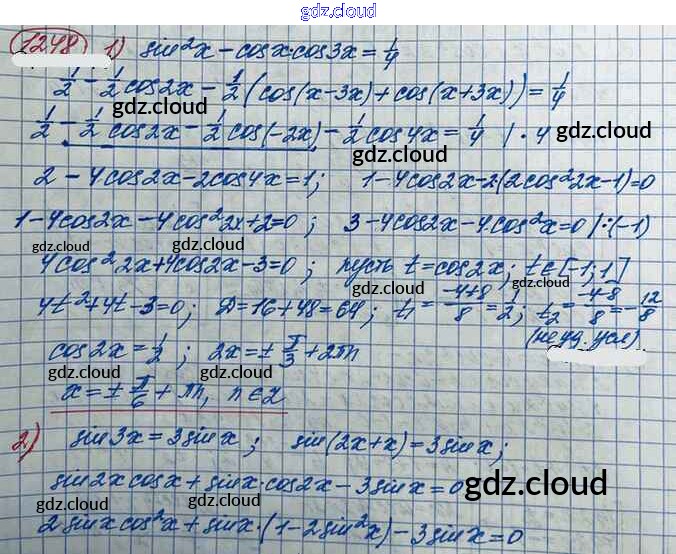 gdz.cloud
gdz.cloud
1248 1) sin²x - cosx·cos3x = 1/4
1/2 - 1/2 cos2x - 1/2 (cos(x-3x) + cos(x+3x)) = 1/4
gdz.cloud
1/2 - 1/2 cos2x - 1/2 cos(-2x) - 1/2 cos4x = 1/4 | · 4 gdz.cloud
gdz.cloud
2 - 4cos2x - 2cos4x = 1; 1 - 4cos2x - 2(2cos²2x - 1) = 0
gdz.cloud gdz.cloud
1 - 4cos2x - 4cos²2x + 2 = 0; 3 - 4cos2x - 4·cos²x = 0 | :(-1)
gdz.cloud gdz.cloud
4cos²2x + 4cos2x - 3 = 0; пусть t = cos2x; t ∈ [-1; 1]
gdz.cloud gdz.cloud
4t² + 4t - 3 = 0; D = 16 + 48 = 64; t₁ = (-4+8)/8 = 1/2; t₂ = (-4-8)/8 = -12/8
gdz.cloud gdz.cloud
(не уд. усл)
cos2x = 1/2; 2x = ± π/3 + 2πn
gdz.cloud gdz.cloud
x = ± π/6 + πn, n ∈ Z
2) sin3x = 3sinx; sin(2x+x) = 3sinx;
gdz.cloud
sin2x cosx + sinx·cos2x - 3sinx = 0 gdz.cloud
gdz.cloud
2sinx cos²x + sinx·(1 - 2sin²x) - 3sinx = 0
gdz.cloud